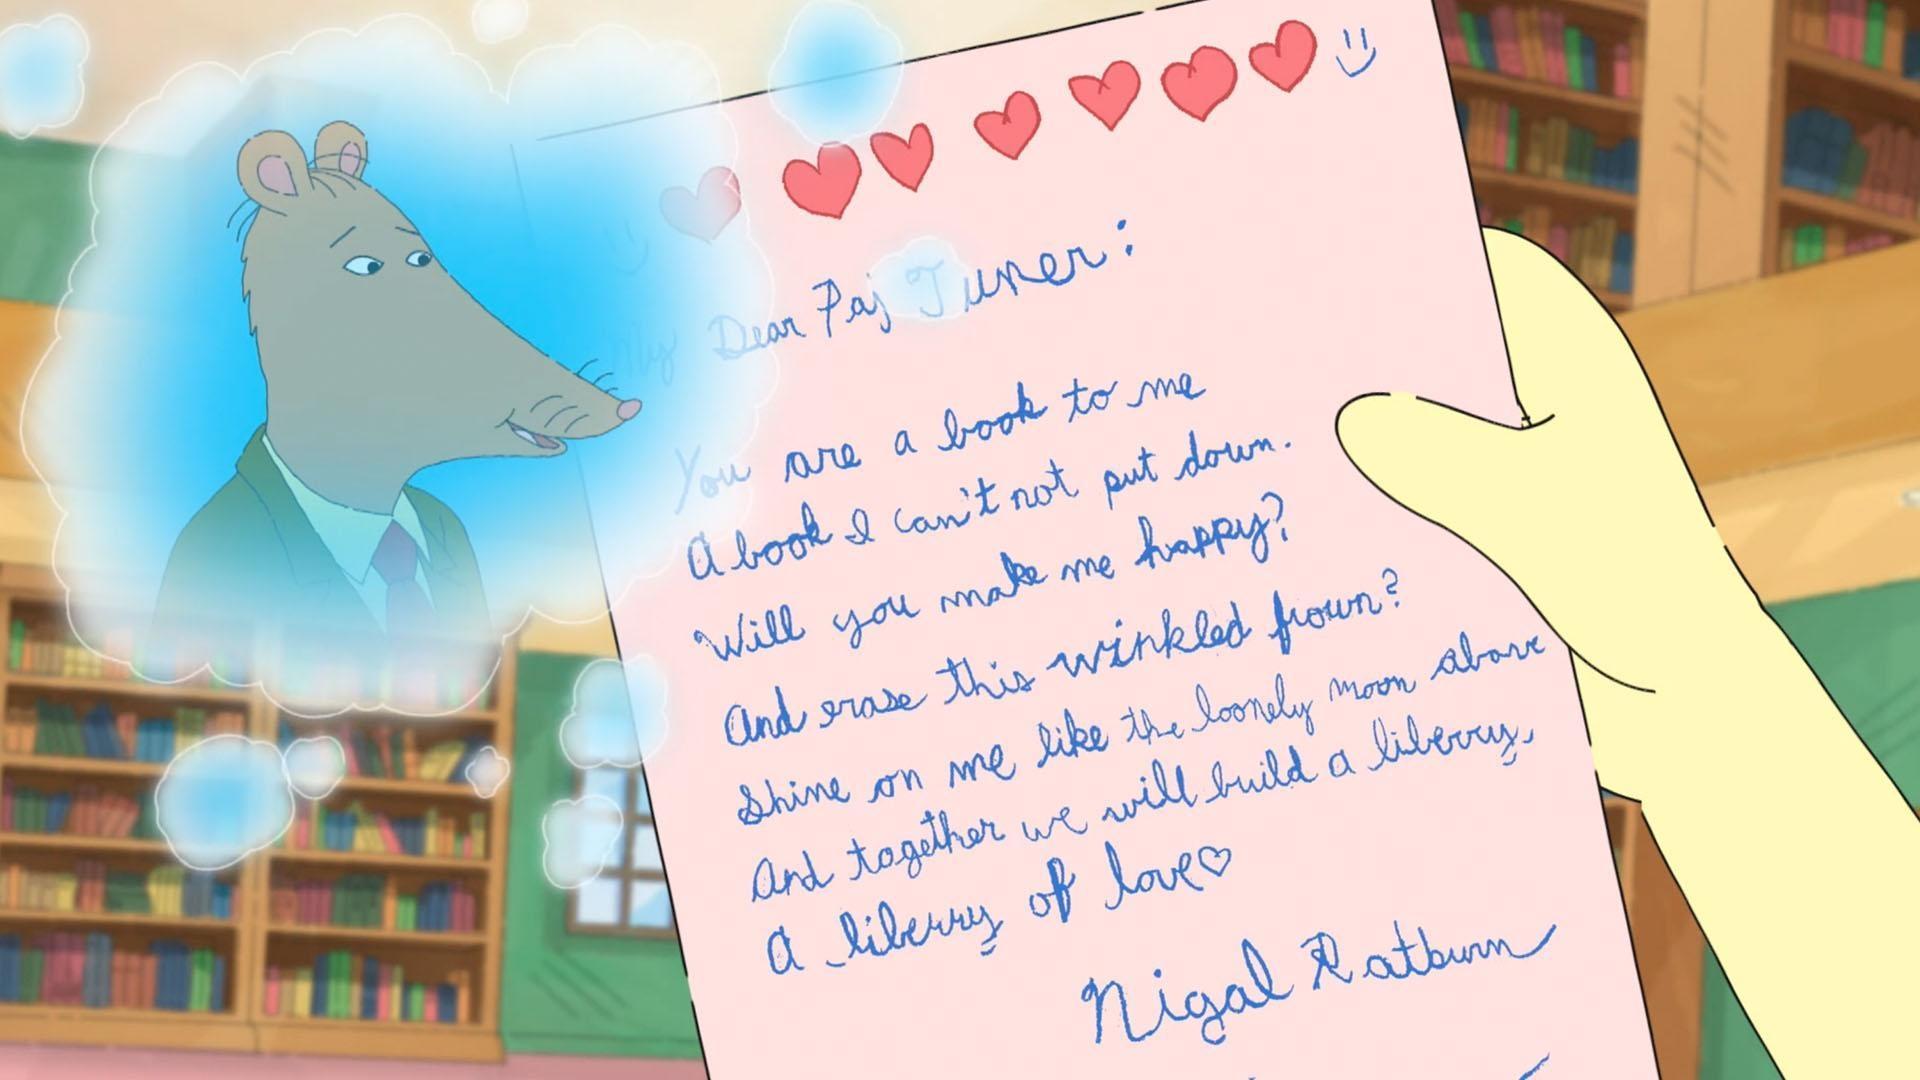 My Dear Paj Tuner:
You are a book to me
A book I can't not put down.
Will you make me happy?
And erase this winkled frown?
Shine on me like the loonely moon above
And together we will build a liberry,
A liberry of love♡
Nigal Ratburn